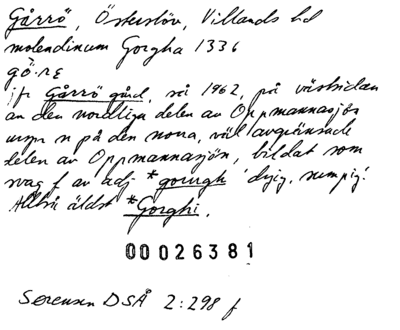 Gårrö, Österslöv, Villands hd
molendinum Gorgha 1336
gǒ·rε
jfr Gårrö gård, så 1962, på västsidan
av den nordliga delen av Oppmannasjön
urspr n på den norra, väl avgränsade
delen av Oppmannasjön, bildat som
svag f av adj *gorugh 'dyig, sumpig'.
Alltså äldst *Gorghi.
00026381
Sørensen DSÅ 2:298 f